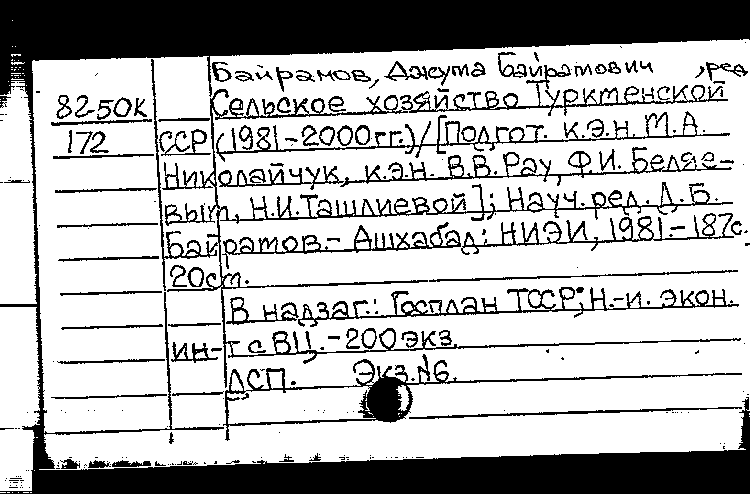 Байрамов, Джума Байрамович, ред
82-50К Сельское хозяйство Туркменской
172 ССР (1981-2000гг.)/[Подгот. к.э.н. М.А.
Николайчук, к.э.н. В.В. Рау, Ф.И. Беляе-
вым, Н.И.Ташлиевой]; Науч. ред. Д.Б.
Байрамов.- Ашхабад: НИЭИ, 1981.-187с.
20см.
В надзаг.: Госплан ТССР; Н.-и. экон.
ин-т с ВЦ.-200экз.
ДСП. Экз.№6.